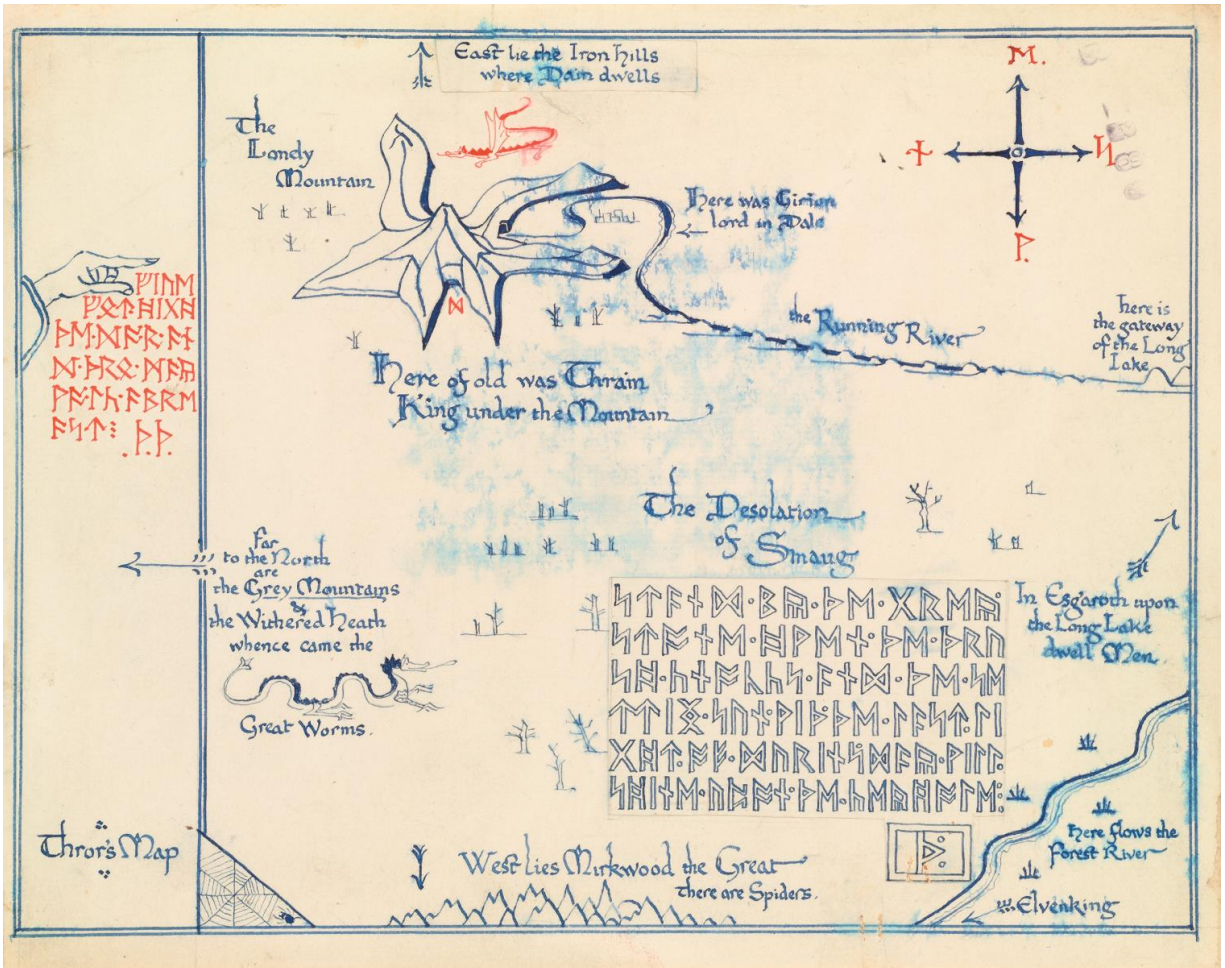 East lie the Iron Hills
where Dain dwells
The
Lonely
Mountain
ᛖ.
ᚾ
ᛋ
ᚹ.
Here was Girion
lord in Dale
ᚠᛁᚢᛖ
ᚠᛟᛏ·ᚻᛁᚷᚻ
ᚦᛖ·ᛞᚩᚱ·ᚪᚾ
ᛞ·ᚦᚱᛟ·ᛗᚪᚣ
ᚹᚪ·ᛚᚳ·ᚪᛒᚱᛖ
ᚪᛋᛏ⁝ .ᚦ.ᚦ.
ᛞ
the Running River
Here is
the gateway
of the Long
Lake
Here of old was Thrain
King under the Mountain
The Desolation
of Smaug
Far
to the North
are
the Grey Mountains
&
the Withered Heath
whence came the
Great Worms.
ᛋᛏᚪᚾᛞ·ᛒᚣ·ᚦᛖ·ᚷᚱᛖᚣ·
ᛋᛏᚩᚾᛖ·ᚻᚹᛖᚾ·ᚦᛖ·ᚦᚱᚢ
ᛋᚻ·ᚳᚾᚩᚳᚳᛋ·ᚪᚾᛞ·ᚦᛖ·ᛋᛖ
ᛏᛏᛁᛝ·ᛋᚢᚾ·ᚹᛁᚦ·ᚦᛖ·ᛚᚪᛋᛏ·ᛚᛁ
ᚷᚻᛏ·ᚩᚠ·ᛞᚢᚱᛁᚾᛋ·ᛞᚪᚣ·ᚹᛁᛚᛚ·
ᛋᚻᛁᚾᛖ·ᚢᛈᚩᚾ·ᚦᛖ·ᚳᛖᚣᚻᚩᛚᛖ:
In Esgaroth upon
the Long Lake
dwell Men.
Thror's Map
West lies Mirkwood the Great
there are Spiders.
Here flows the
Forest River
Elvenking